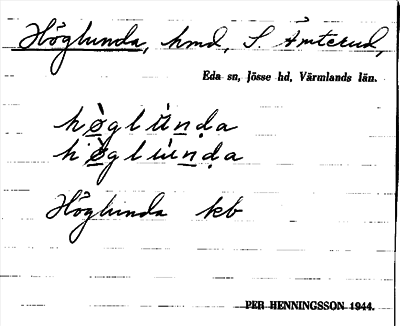 Höglunda, hmd, S. Ämterud,
Eda sn, Jösse hd, Värmlands län.
hø̀glùnḍa
hø̀glùnḍa
Höglunda kb
PER HENNINGSSON 1944.